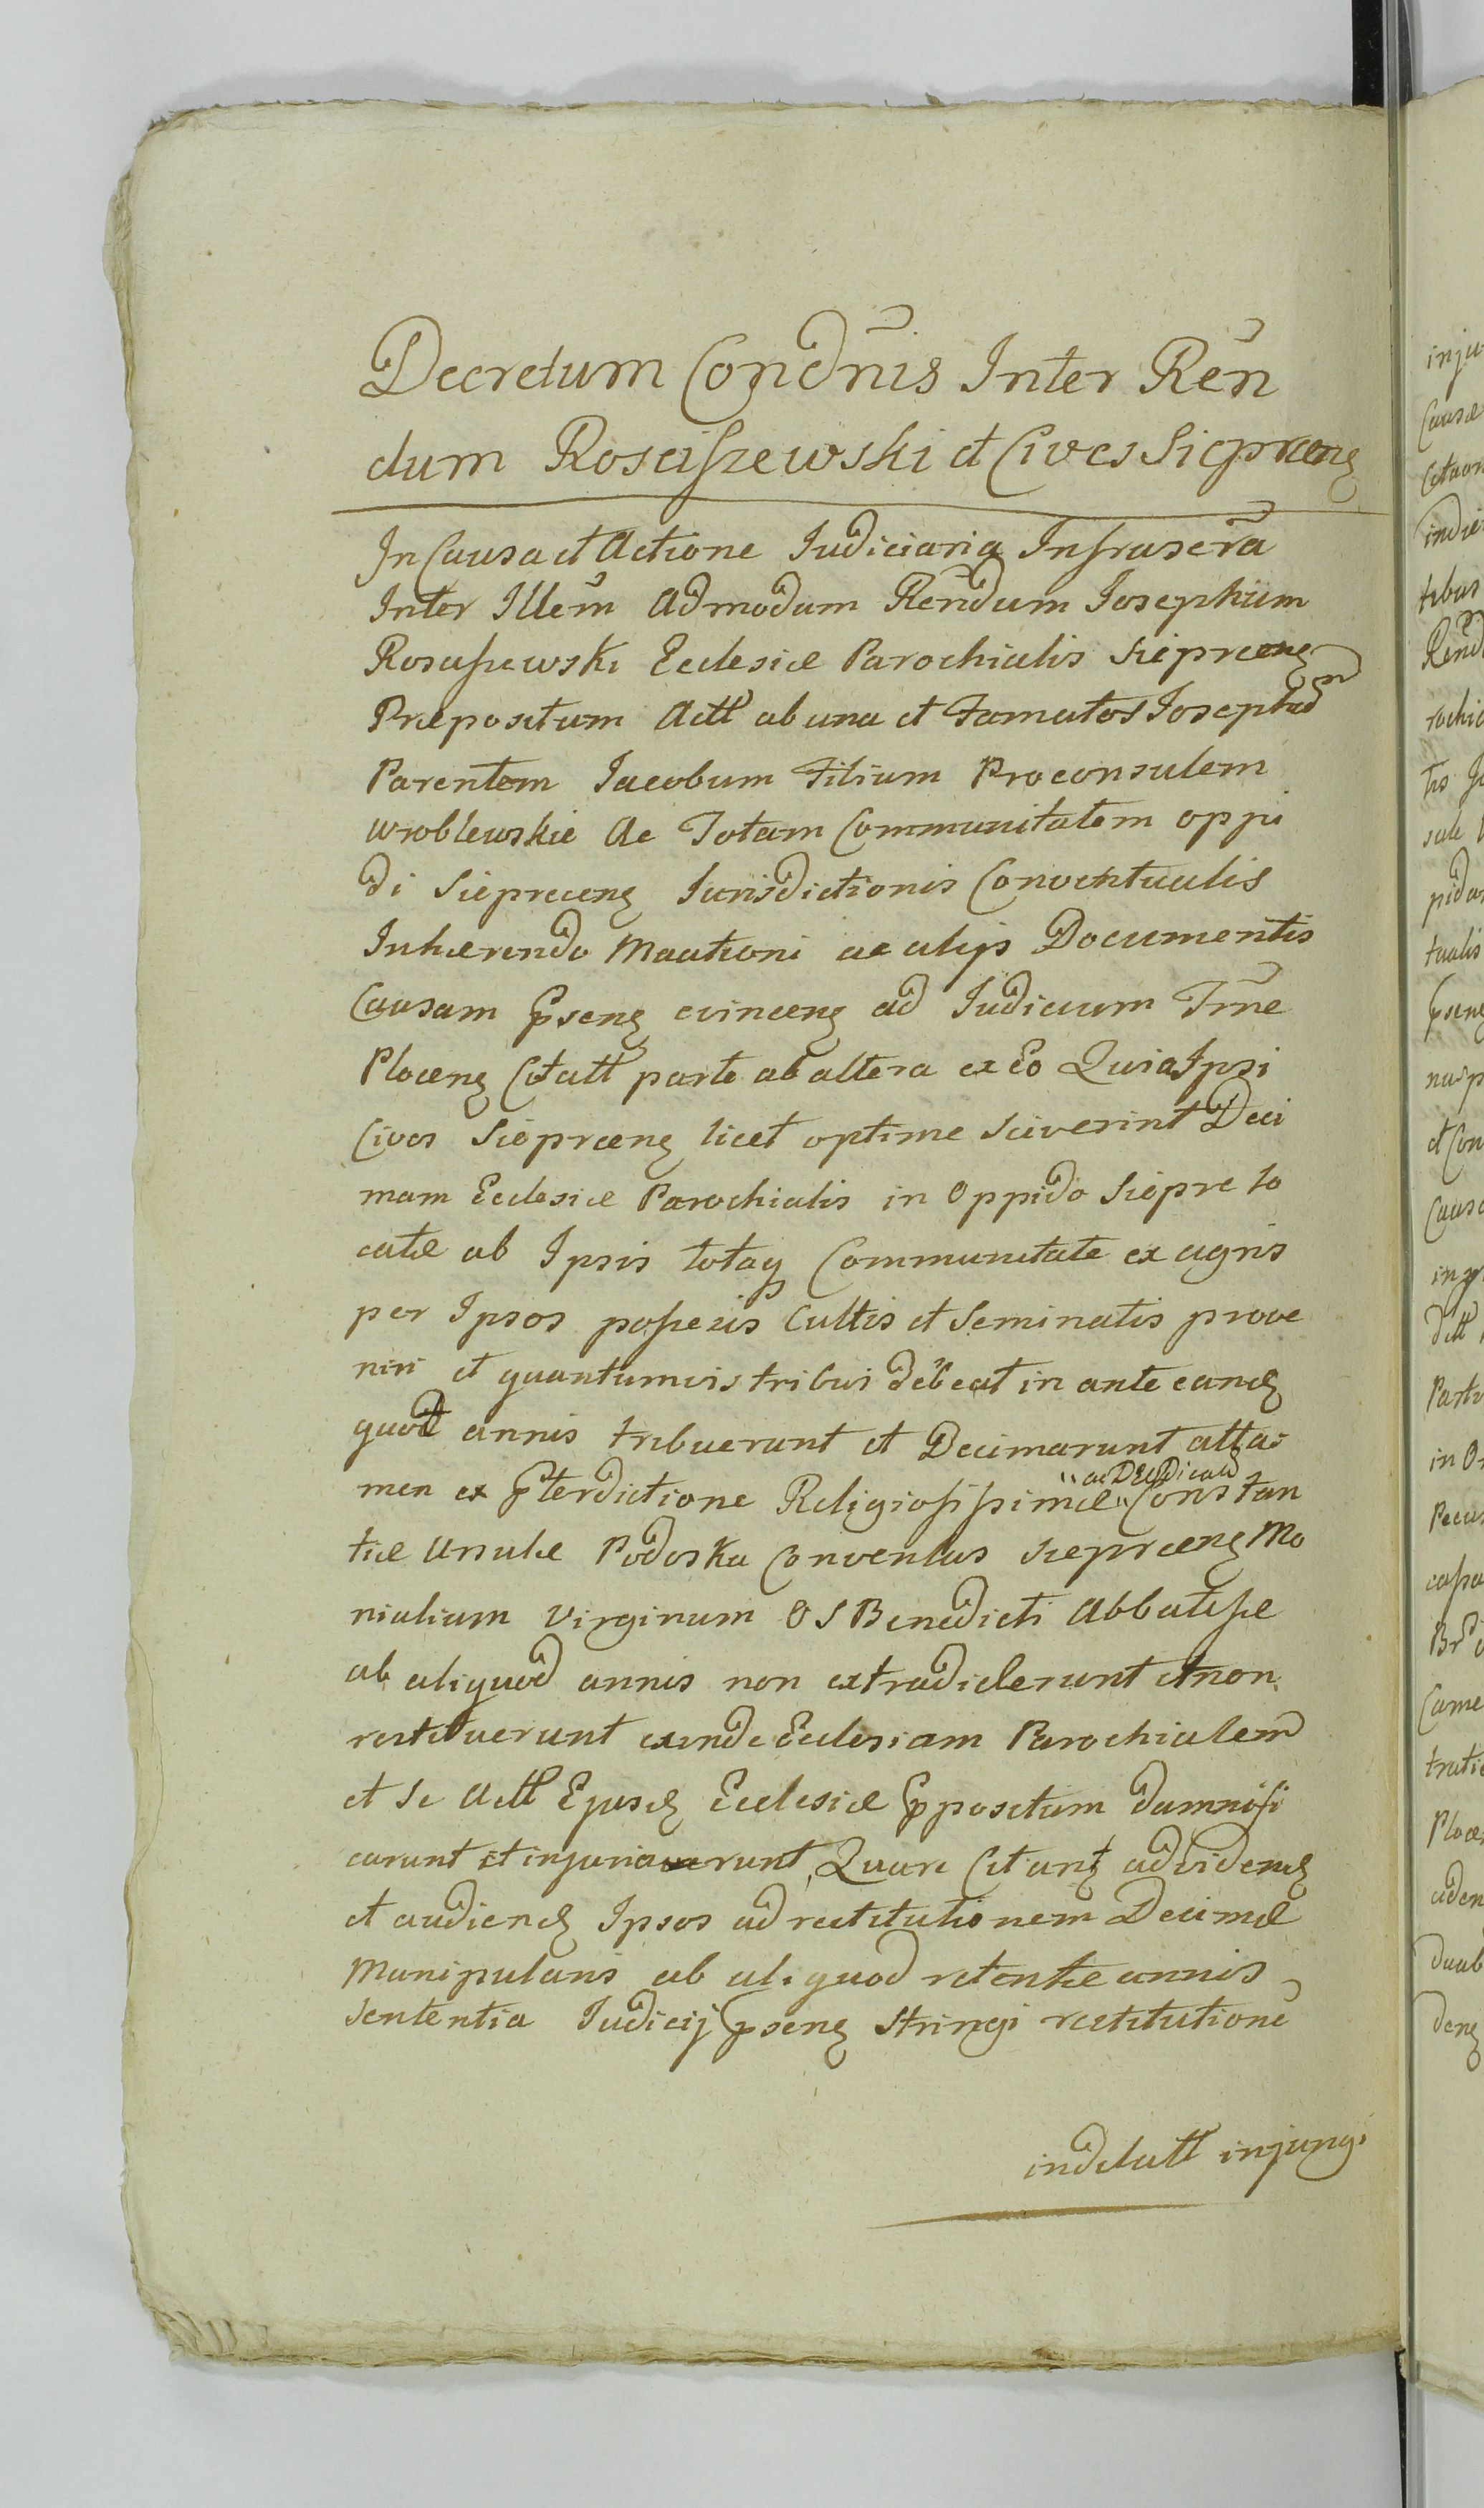 Decretum Condnis Inter Ren
dum Rosciszewski et Cives Sieprcens
In Causa et Actione Judiciaria Infrascra
Inter Illem Admodum Rendum Josephum
Rosciszewski Ecclesiæ Parochialis Sieprcens
Præpositum Actt ab una et Famatos Josephum
Parentem Jacobum Filium Proconsulem
Wroblewskie Ac Totam Communitatem oppi
di Sieprcens Jurisdictionis Conventualis
Inhærendo ac alijs Documentis
Causam pnsens evincens ad Judicium Trne
Plocens Citatt parte ab altera ex Eo Quia Ipsi
Cives Sieprcens licet optime sciverint Deci
mam Ecclesiæ Parochialis in Oppido Sieprc lo
catæ ab Ipsis totaq Communitate ex agris
per Ipsos possessis Cultis et Seminatis prove
niri et quantumvis tribui debeat in ante eand
quod annis tribuerunt et Decimarunt attai
men ex Religiosissimæ "ac DEo Dicatæ" Constan
tiæ Ursulæ Podoska Conventus Sieprcens Mo
nialium Virginum O S Benedicti Abbatissæ
ab aliquod annis non extradiderunt et non
restituerunt exinde Ecclesiam Parochialem
et se Actt Ejusd Ecclesiæ Ppositum damnifi
carunt et injuriaverunt, Quare Citant ad vidend
et audiend Ipsos ad restitutionem Decimæ
Manipularis ab aliquod retentæ annis
sententia Judicij pnsens stringi restitutione
indelatt injungi
inju
Causæ
Citaon
indic
tibus
Rend
rochia
tualis
et Con
Causa
Parte
Pecun
Came
Ploce